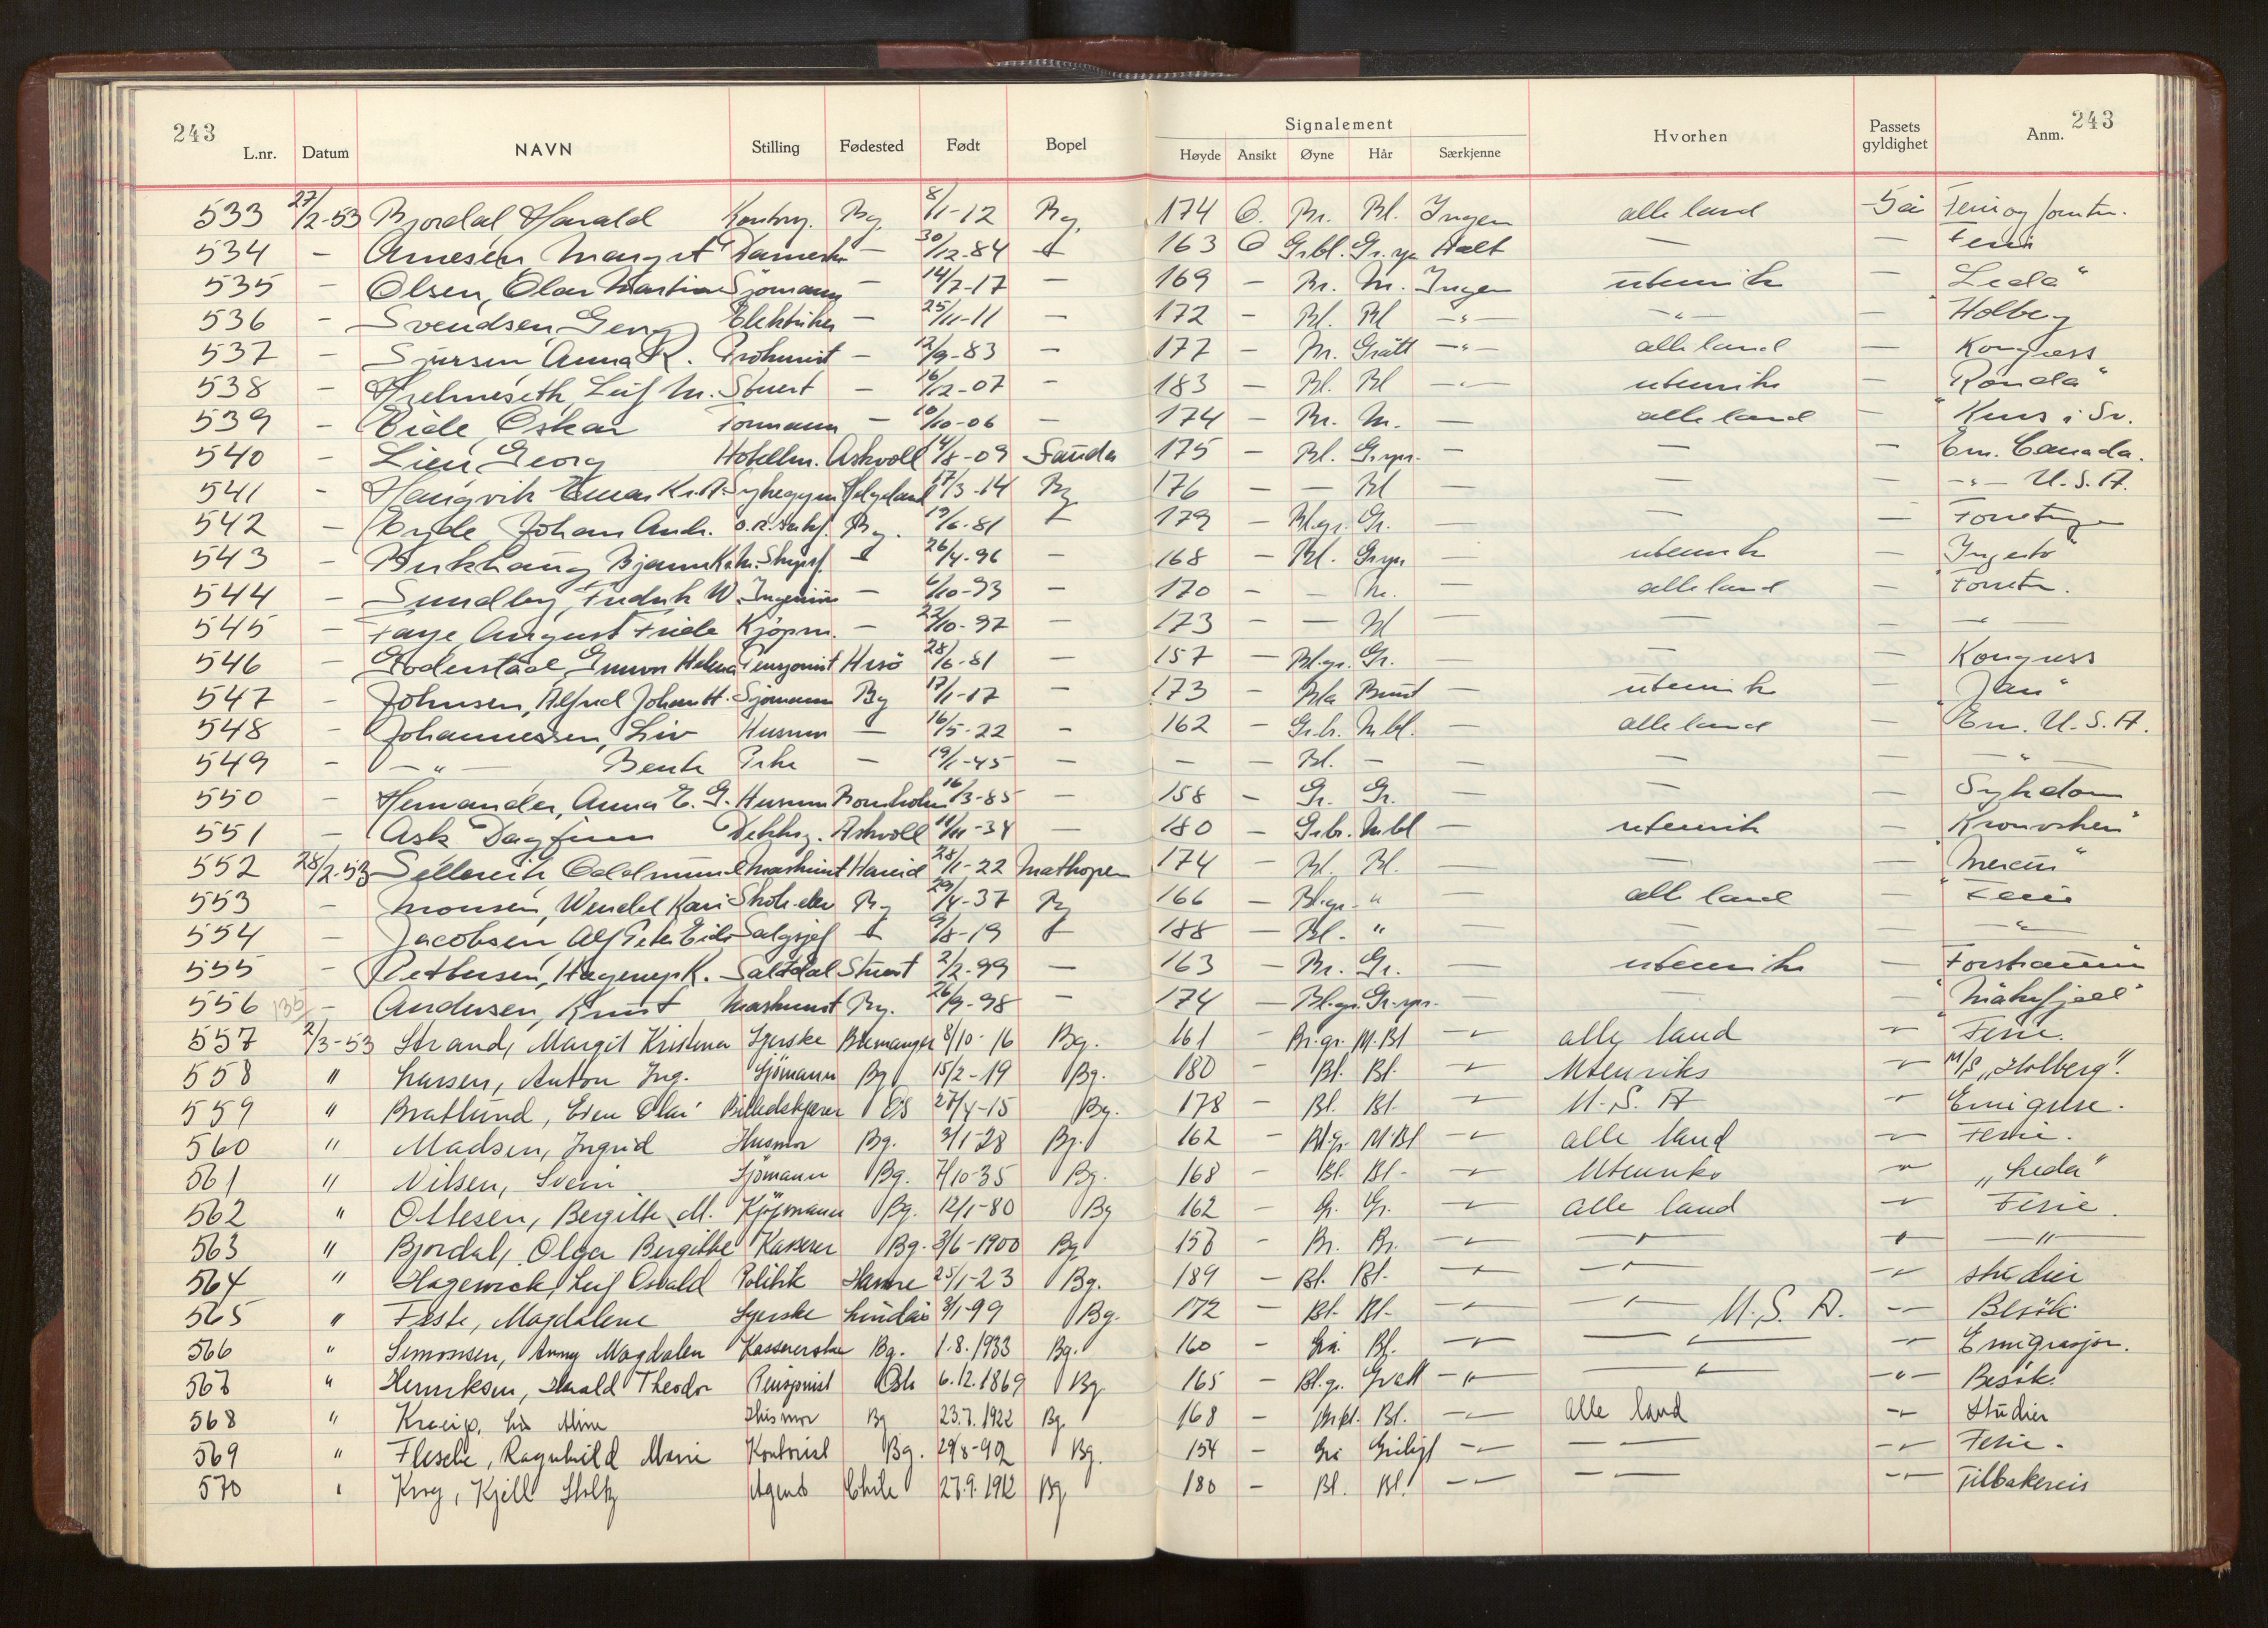 243 243
Signalement
L.nr. Datum NAVN Stilling Fødested Født Bopel Høyde Ansikt Øyne Hår Særkjenne Hvorhen Passets gyldighet Anm.
533 27/2-53 Bjordal Harald Bg. 8/1-12 Bg. 174 O. Br. Bl. Ingen alle land 5 år Ferie og forretn.
534 - Arnesen Margit - 30/12-84 163 O Grbl. Halt - - Ferie
535 - Olsen, Olav Martin Sjömann - 14/7-17 - 169 - Br. M. Ingen utenriks - "Leda"
536 - Svendsen, Georg Elektriker - 25/11-11 - 172 - Bl. Bl -"- -"- - "Holberg
537 - Sjursen Anna K. - 12/9-83 - 177 - Br. Grått -"- alle land - Kongress
538 - Leif M. Stuert - 16/12-07 - 183 - Bl. Bl -"- utenriks - "Ronda"
539 - Eide Oskar Formann - 10/10-06 - 174 - Br. M. - alle land - Kurs i Sv.
540 - Lien Georg Hotellm. Askvoll 14/8-09 Sauda 175 - Bl. - - - Em. Canada.
541 - Haugvik Helgeland 17/3-14 Bg 176 - - Bl - - - -"- U.S.A.
542 - Eyde Johan Andr. Bg. 19/6-81 179 - Bl.gr. Gr. - - - Forretning
543 - Birkhaug Bjarne 26/4-96 - 168 - Bl. - utenriks - "Ingerto"
544 - Sundby, Fredrik W. Ingeniör - 6/10-93 - 170 - - M. - alle land - Forretn.
545 - Faye August Friele Kjöpm. - 22/10-97 - 173 - - Bl - - - -
546 - Goderstad Gunvor Helena Pensjonist Hisö 28/6-81 - 157 - Bl.gr. Gr. - - - Kongress
547 - Johnsen, Alfred Johan H. Sjömann Bg 17/1-17 - 173 - Bla Brunt - utenriks - "Jan"
548 - Johannessen, Liv Husmor - 16/5-22 - 162 - Gr.b. M.bl. - alle land - Em. U.S.A.
549 - -"- Bente Pike - 19/1-45 - - - Bl. - - - - -"-
550 - Hernander, Anna E. G. Husmor Bornholm 16/3-85 - 158 - Gr. Gr. - - - Sykdom
551 - Ask Dagfinn Dekksg. Askvoll 11/11-34 - 180 - Grbr. M.bl - utenriks - "Kronviken"
552 28/2-53 Oddmund Maskinist Hareid 28/1-22 Mathopen 174 - Bl. Bl. - - - "Mercur"
553 - Monsen, Wendel Kari Skole elev Bg 29/4-37 Bg 166 - Bl.gr. " - alle land - Ferie
554 - Jacobsen Alf Peter Eide Salgsjef 9/8-19 188 - Bl. " - - - -"-
555 - Pettersen, K. Saltdal Stuert 2/2-99 - 163 - Br. Gr. - utenriks -
556 135 - Andersen, Knut Maskinist Bg. 26/9-98 - 174 - Bl.gr. Gr.spr. - - - "Måkefjell"
557 2/3-53 Strand, Margit Kristina Syerske Bremanger 8/10-16 Bg. 161 - Br.gr. M.Bl -"- alle land -"- Ferie.
558 " Larsen, Anton Ing. Sjömann Bg 15/2-19 Bg. 180 - Bl. Bl. -"- Utenriks -"- M/S „Holberg".
559 " Bratlund, Even Olai Billedskjærer Os 27/4-15 Bg. 178 - Bl. Bl. -"- U.S.A -"- Emigrere.
560 " Madsen, Ingrid Husmor Bg. 3/1-28 Bg. 162 - Bl.gr. M.Bl -"- alle land -"- Ferie.
561 " Nilsen, Svein Sjömann Bg. 7/10-35 Bg. 168 - Bl. Bl- -"- Utenriks -"- „Leda"
562 " Ottesen, Bergitte M. Kjöpmann Bg. 12/1-80 Bg 162 - Gr. Gr. -"- alle land -"- Ferie.
563 " Bjordal, Olga Bergitte Kasserer Bg. 3/6-1900 Bg. 158 - Br. Br. -"- -"- -"- -"-
564 " Leif Osvald Politik Hamre 25/1-23 Bg. 189 - Bl. Bl- -"- -"- -"- studier
565 " Feste, Magdalene Syerske Lindås 3/1-99 Bg. 172 - Bl- Bl- -"- -"- U.S.A. -"- Besök.
566 " Simonsen, Anny Magdalen Kassererske Bg. 1.8.1933 Bg. 160 - Grå. Bl. -"- -"- -"- Emigrasjon.
567 " Henriksen, Harald Theodor Pensjonist Oslo 6.12.1869 Bg. 165 - Bl.gr. Grått -"- -"- -"- Besök.
568 " Husmor Bg 23.7.1922 Bg. 168 - Mrkl. Bl. -"- alle land -"- Studier
569 " Flesche, Ragnhild Marie Kontorist Bg. 29/8-92 Bg. 154 - Grå -"- -"- -"- Ferie.
570 " Krog, Kjell Stoltz Agent Chile 27.9.1912 Bg 180 - Bl. Bl. -"- -"- -"- Tilbakereis